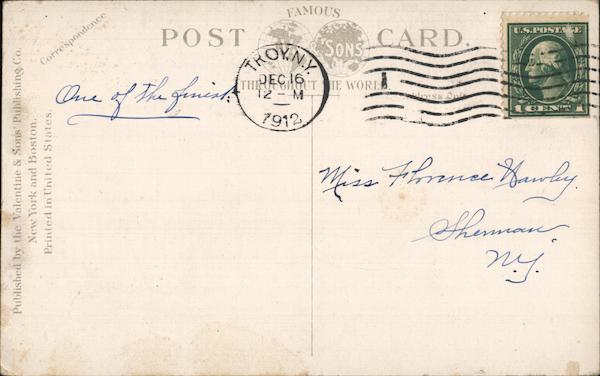 FAMOUS
POST CARD.
SONS
THROUGHOUT THE WORLD
Correspondence
TROY, N.Y.
DEC 16
12 - M
1912
U.S. POSTAGE
1 CENT 1
One of the finest
Miss Florence Hawley
Sherman
N.Y.
Published by the Valentine & Sons' Publishing Co.
New York and Boston.
Printed in United States.